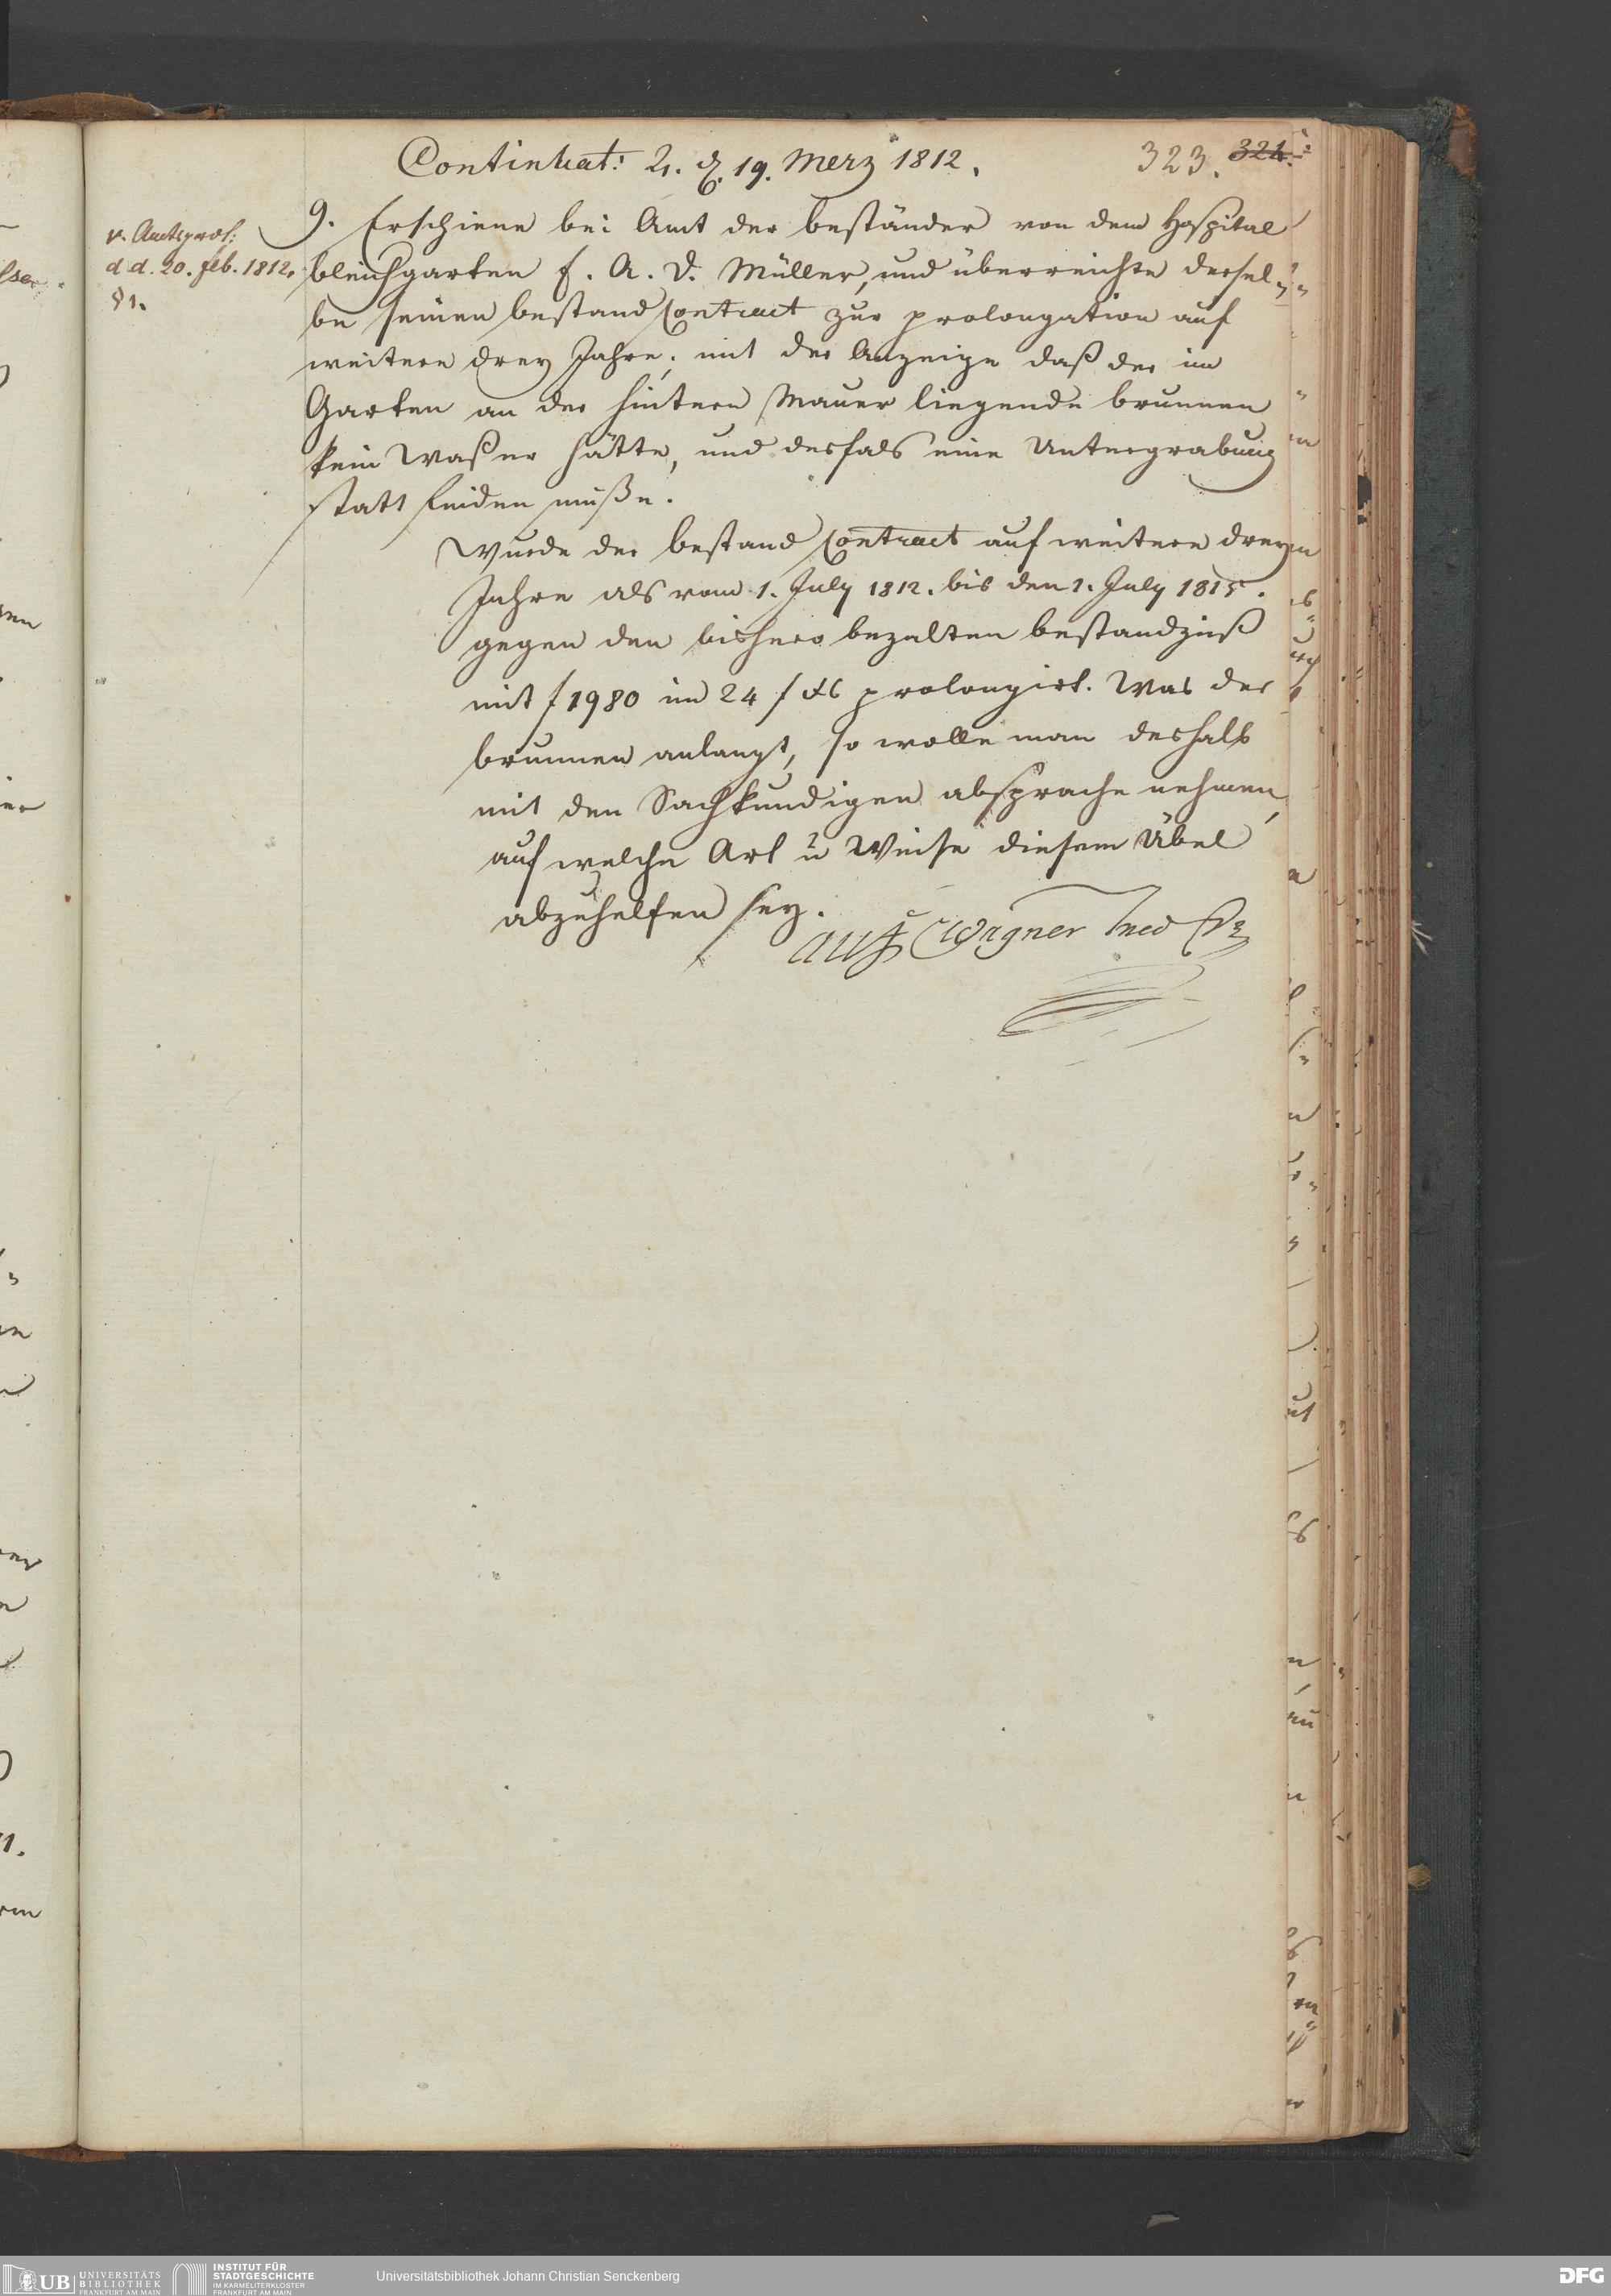 Continuat: 2. d. 19. Merz 1812.
323. 324.
v. Amtsprot:
d d. 20. feb. 1812.
§ 1.
9. Erschiene bei Amt der beständer von dem Hospital
bleichgarten f. A. D. Müller, und überreichte dersel-
be seinen bestand Contract zur prolongation auf
weitere drey Jahre, mit der Anzeige daß der im
Garten an der hintern Mauer liegende brunnen
kein Waßer hätte, und desfals eine Untergrabung
statt finden müße.
Wurde der bestand Contract auf weitere drey
Jahre als vom 1. July 1812. bis den 1. July 1815.
gegen den bishero bezalten bestandzinß
mit f 1980 im 24 f prolongirt. Was der
brunnen anlangt, so wolle man deshalb
mit den Sachkundigen absprache nehmen,
auf welche Art u Weise diesem Übel
abzuhelfen sey.
Wagner
UB UNIVERSITÄTS
BIBLIOTHEK
FRANKFURT AM MAIN
INSTITUT FÜR
STADTGESCHICHTE
IM KARMELITERKLOSTER
FRANKFURT AM MAIN
Universitätsbibliothek Johann Christian Senckenberg
DFG